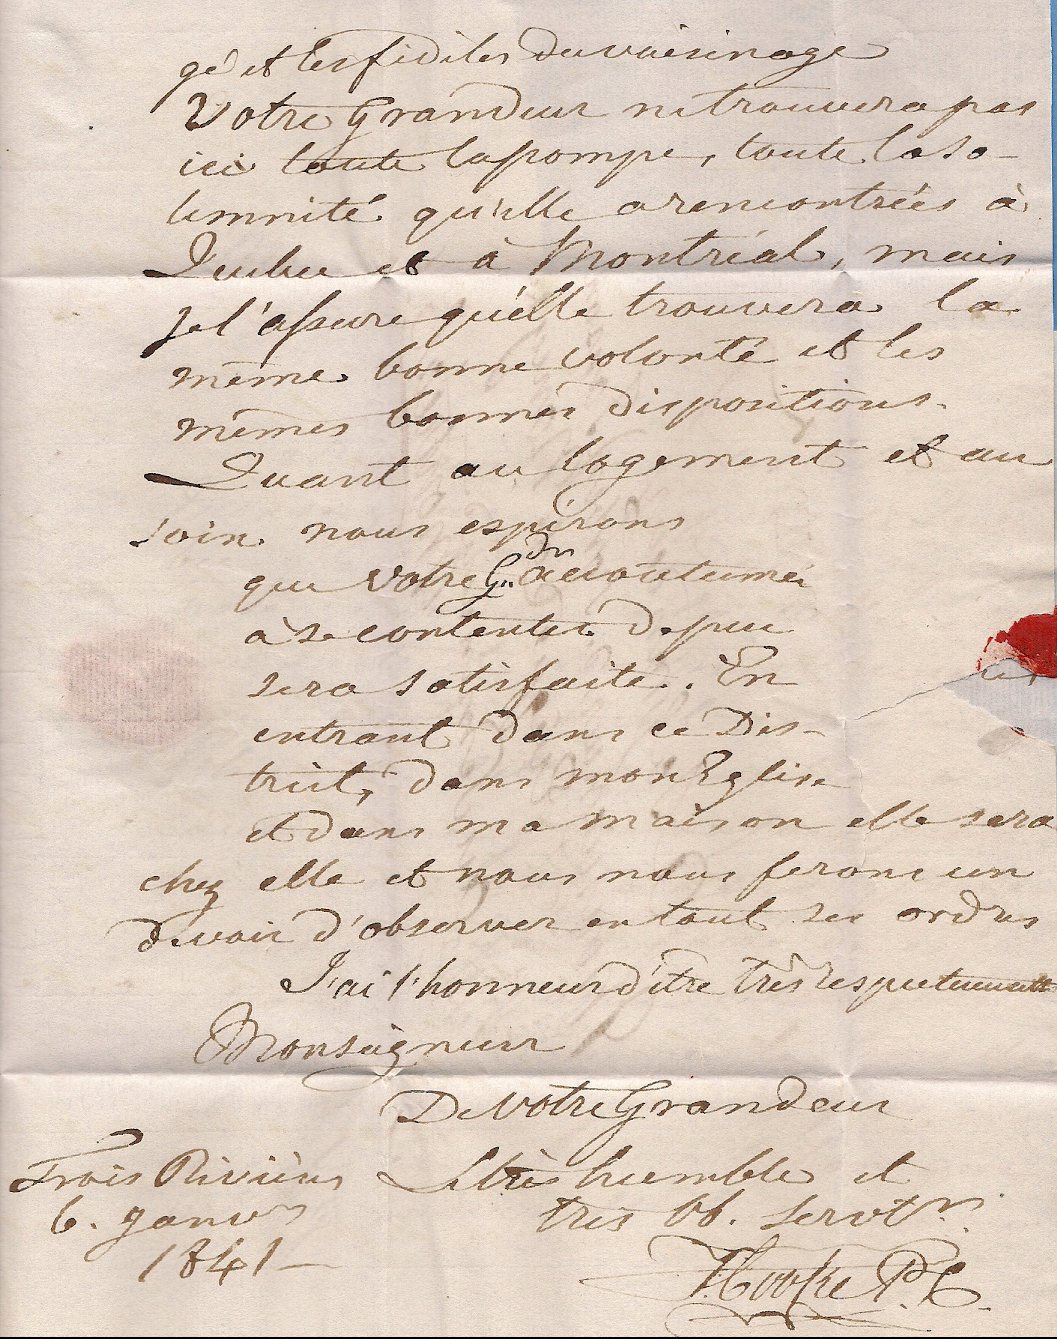 gé et les fidèles du voisinage
Votre Grandeur ne trouvera pas
ici toute la pompe, toute la so-
lemnité qu'elle a rencontrées à
Quebec et à Montréal, mais
je l'assure qu'elle trouvera la
même bonne volonté et les
mêmes bonnes dispositions.
Quant au logement et au
soin nous espérons
que votre Gr. dr accoutumée
à se contenter de peu
sera satisfaite. En
entrant dans ce Dis-
trict, dans mon Eglise
et dans ma maison elle sera
chez elle et nous nous ferons un
devoir d'observer en tout ses ordres
J'ai l'honneur d'être très respectueusemt
Monseigneur
De Votre Grandeur
Le très humble et
très Ob. Servtr.
Trois Rivières
6. Janvr
1841
T. Cooke P.C.